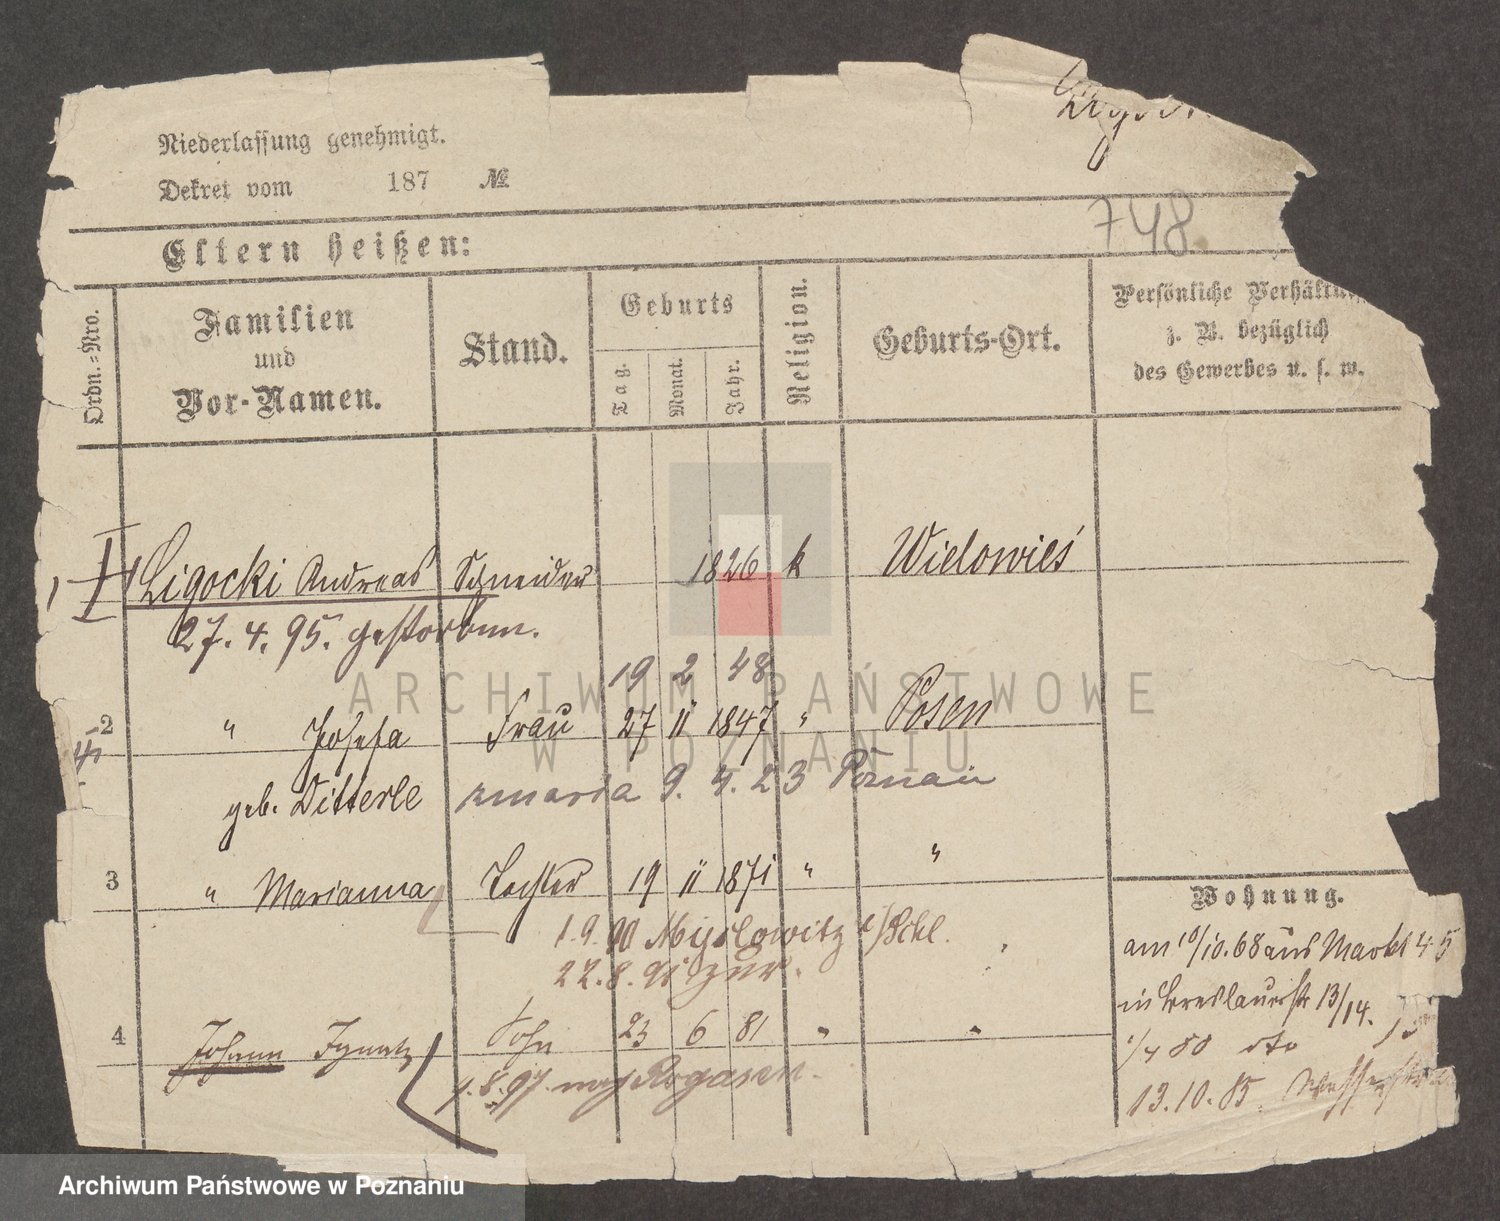 Niederlassung genehmigt.
Dekret vom 187 №
748
Eltern heißen:
Ordn.=Nro.
Familien
und
Vor-Namen.
Stand.
Geburts
Tag.
Monat.
Jahr.
Religion.
Geburts-Ort.
Persönliche
z. B. bezüglich
des Gewerbes u. s. w.
1 Ligocki Andreas Schneider 1826 k Wielowieś
27. 4. 95. gestorben.
19 2 48
2 " Josefa Frau 27 11 1847 " Posen
geb. Ditterle zmarła 9. 4. 23 Poznań
3 " Marianna Tochter 19 11 1871 " "
1. 9. 90 Myslowitz o/Schl.
22. 8. 91 zur.
4 Johann Ignatz Sohn 23 6 81 " "
1. 8. 97. nach Rogasen.
Wohnung.
am 10/10. 68 aus Markt 45
in Breslauerstr 13/14.
1/4 80 dto
13. 10. 85.
ARCHIWUM PAŃSTWOWE
W POZNANIU
Archiwum Państwowe w Poznaniu